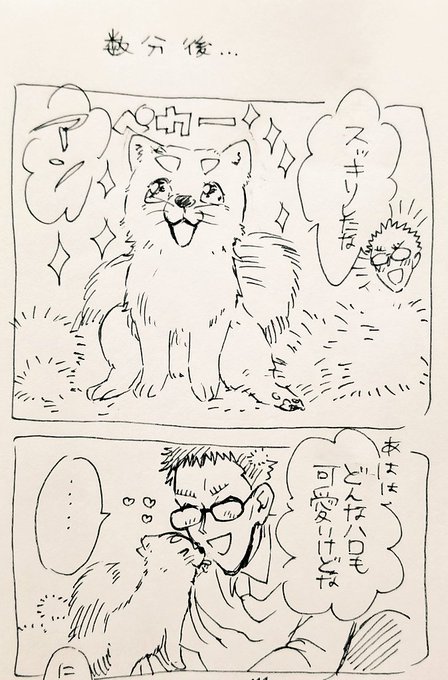 数分後…
スッキリしたな
ペカー
アン
あはは
どんなハロも
可愛いけどな
……